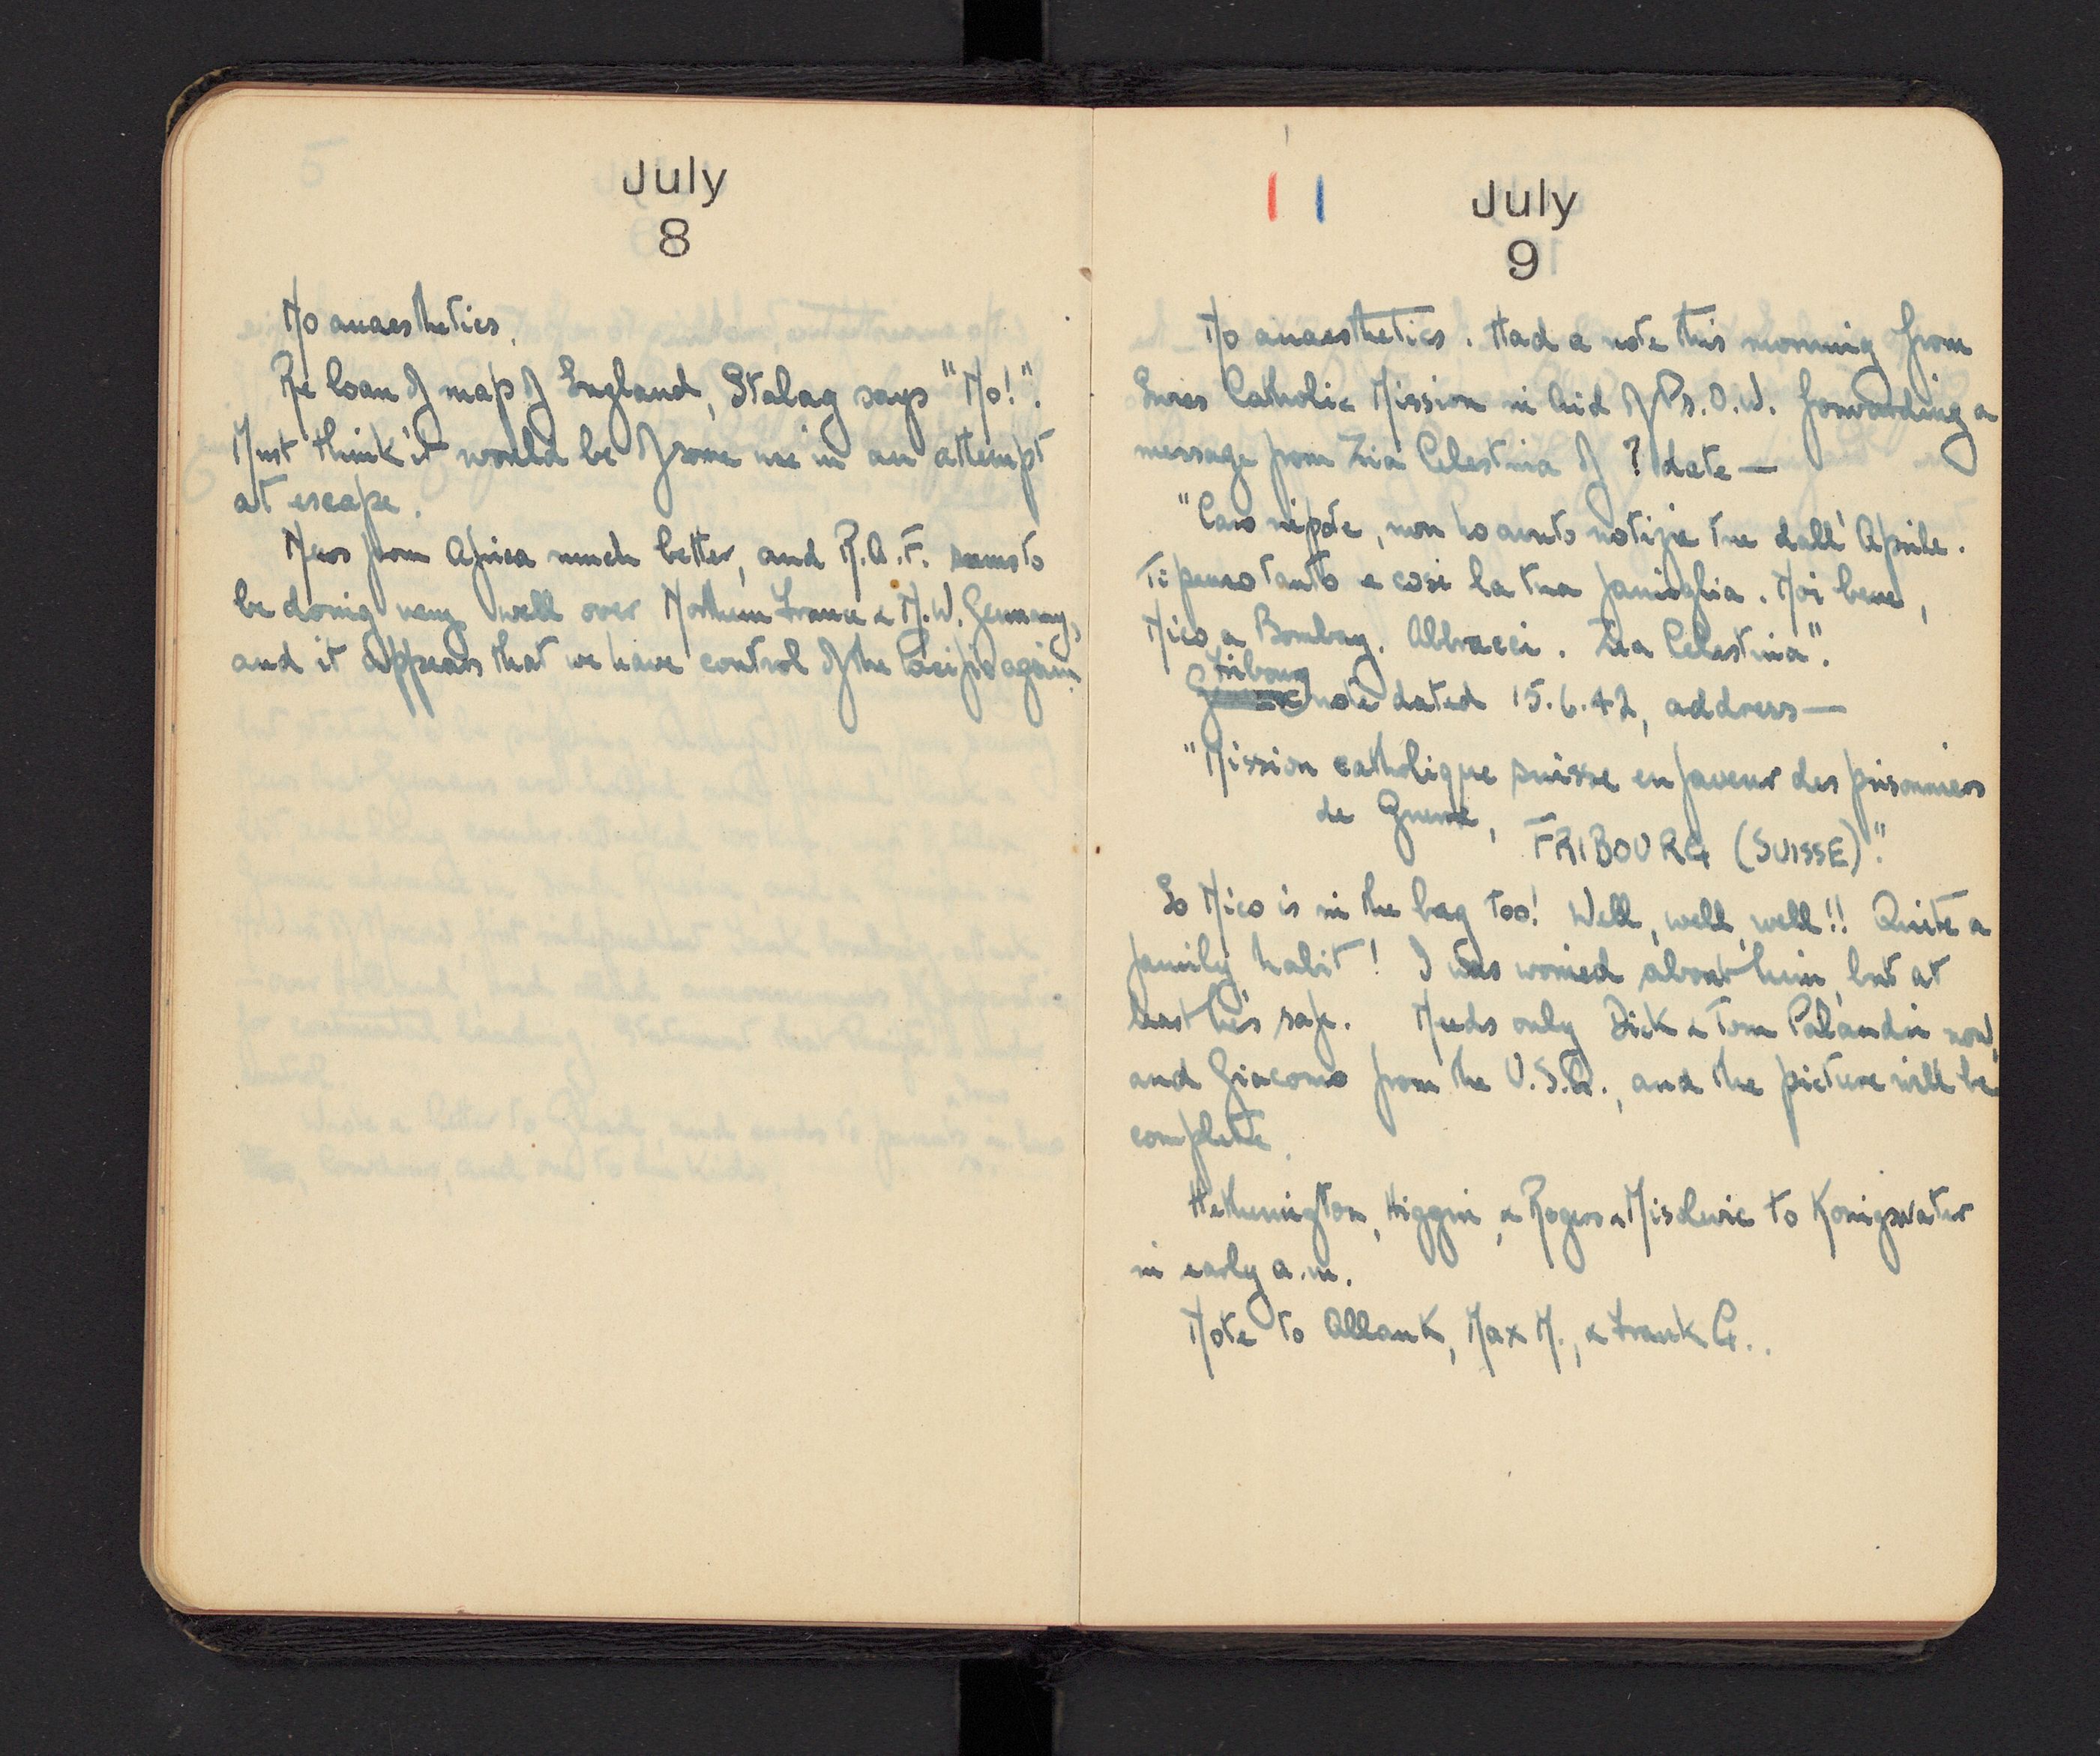 July
8
No anaesthetics.
Re loan of map of England, Stalag says "No!".
Must think it would be of some use in an attempt
at escape.
News from Africa much better, and R.A.F. seems to
be doing very well over Northern France & N.W. Germany,
and it appears that we have control of the Pacific again.
July
9
No anaesthetics. Had a note this morning from
Swiss Catholic Mission in Aid of Ps.O.W. forwarding a
message from Zia Celestina of ? date —
"Caro nipote, non ho avuto notizie tue dall' Aprile.
Ti penso tanto e così la tua famiglia. Noi bene,
Nico a Bombay. Abbracci. Zia Celestina".
Fribourg
note dated 15.6.42, address —
"Mission catholique suisse en faveur des prisonniers
de Guerre, FRIBOURG (SUISSE)."
So Nico is in the bag too! Well, well, well!! Quite a
family habit! I was worried about him, but at
least he's safe. Needs only Dick & Tom Palandri now,
and Giacomo from the U.S.A., and the picture will be
complete.
Hetherington, Higgin, & Rogers & Misdevic to Konigswater
in early a.m.
Note to Allan K, Max M., & Frank G..